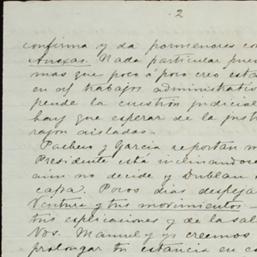 2
confirma y da pormenores co
Anexas. Nada particular pue
mas que poco á poco creo está
en trabajos administrativ
pende la cuestión judicial
hay que esperar de la just
razon aisladas.
Pacheco y García reportan m
Presidente está inclinandos
aun no decide y Dublan
capa. Pocos dias despeja
Ventura y tus movimientos
tus esplicaciones y de la sal
Nos. Manuel y yo creemos
prolongar tu estancia en